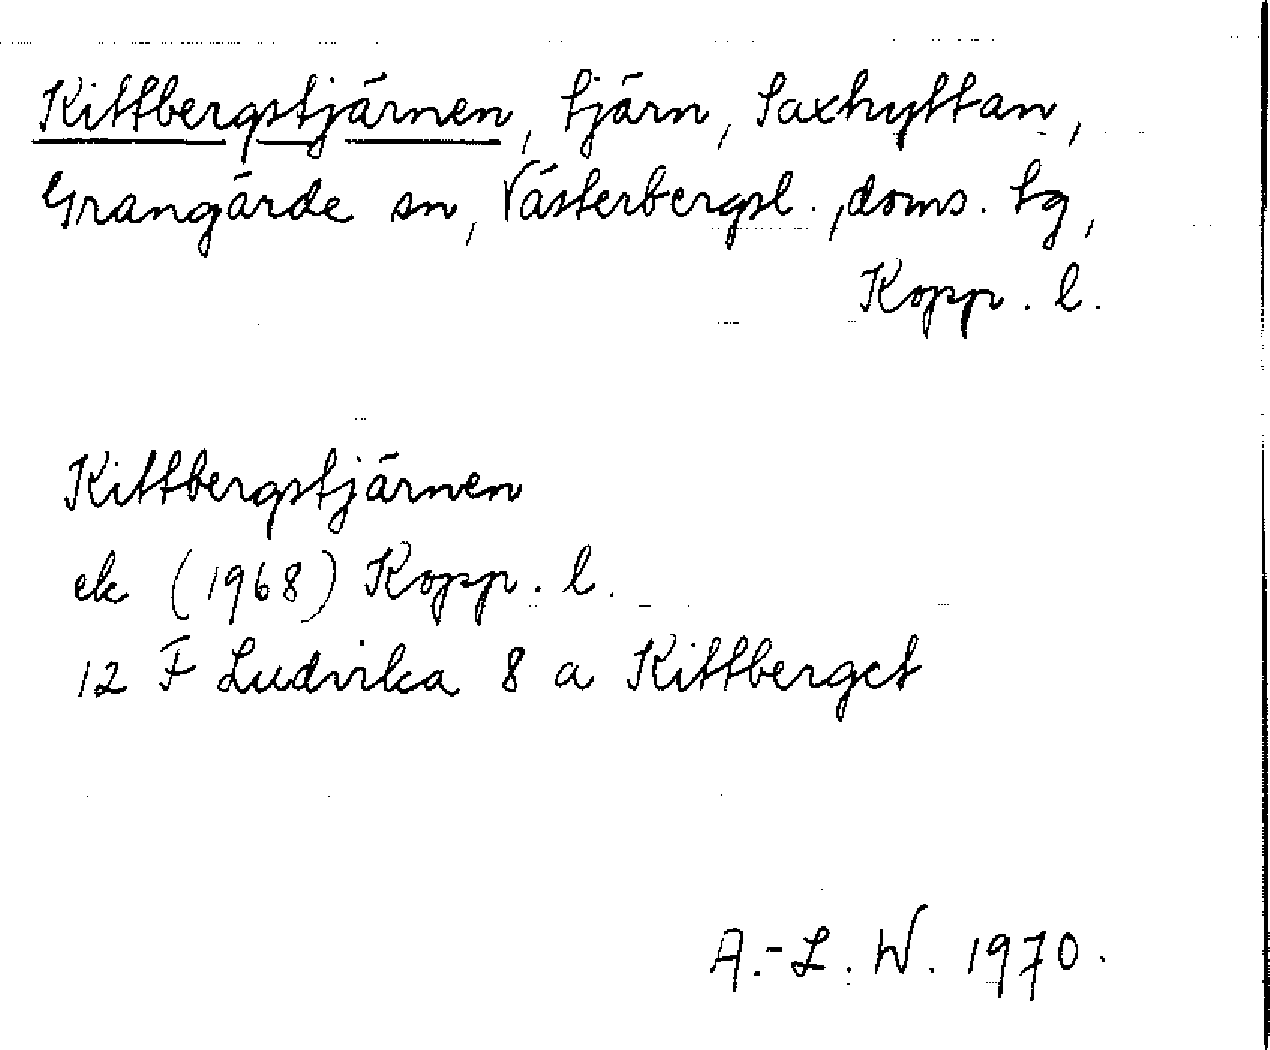 Kittbergstjärnen, tjärn, Saxhyttan,
Grangärde sn, Västerbergsl., doms. tg,
Kopp. l.
Kittbergstjärnen
ek (1968) Kopp. l.
12 F Ludvika 8 a Kittberget
A.-L. W. 1970.